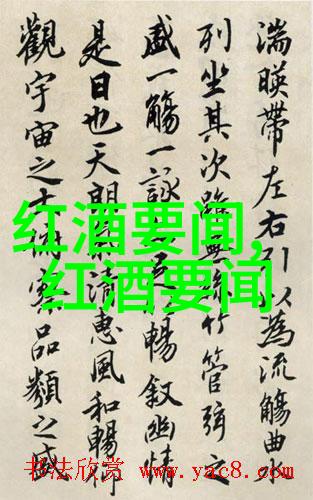 湍暎帶左右引以為流觴曲水
列坐其次雖無絲竹管弦之
盛一觴一詠足暢敘幽情
是日也天朗清惠風和暢仰
觀宇宙之大俯察品類之盛
红酒要闻,
红酒要闻
书法欣赏 www.yac8.com